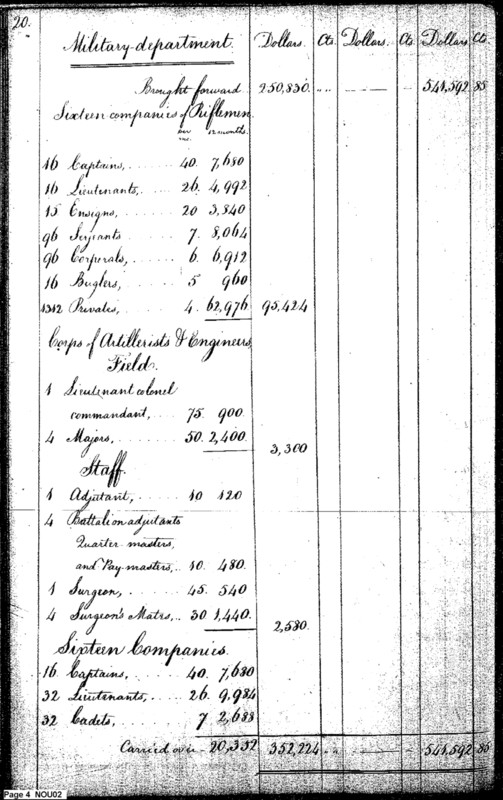 20.
Military department. Dollars. Cts. Dollars. Cts. Dollars Cts.
Brought forward 250,830. .. 541,592 85
Sixteen companies of Riflemen.
per mo. 12 months.
16 Captains, 40. 7,680
16 Lieutenants, 26. 4,992
15 Ensigns, 20 3,840
96 Serjeants 7. 8,064
96 Corporals, 6. 6,912
16 Buglers, 5 960
1312 Privates, 4. 62,976 95,424
Corps of Artillerists & Engineers,
Field.
1 Lieutenant colonel
commandant, 75 900
4 Majors, 50. 2,400. 3,300
Staff.
1 Adjutant, 10 120
4 Battalion adjutants
Quarter-masters,
and Pay-masters, 10. 480.
1 Surgeon, 45. 540
4 Surgeon's Mates, 30 1,440. 2,580.
Sixteen Companies.
16 Captains, 40. 7,680
32 Lieutenants, 26. 9,984
32 Cadets, 7 2,688
Carried over 20,352 352,224 .. 541,592 85
Page 4 NOU02